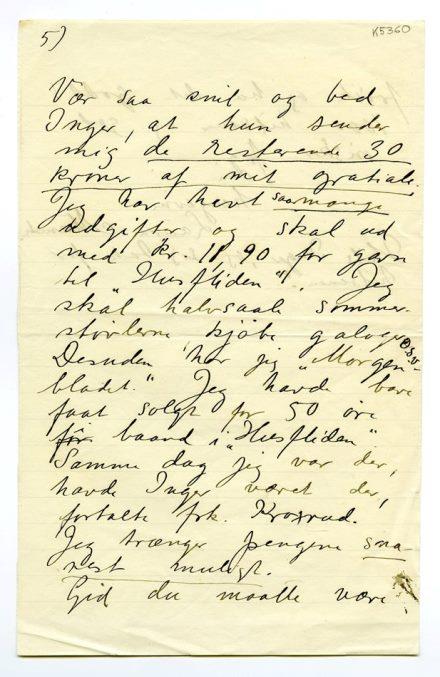 5)
K5360
Vær saa snil og bed
Inger, at hun sender
mig de resterende 30
kroner af mit gratiale.
Jeg har havt saa mange
udgifter og skal ud
med kr. 11,90 for garn
til „Husfliden". Jeg
skal halvsaale sommer-
støvlerne kjøbe galoger o.s.v.
Desuden har jeg „Morgen-
bladet." Jeg havde bare
faat solgt for 50 øre
før baand i „Husfliden"
Samme dag jeg var der,
havde Inger været der,
fortalte frk. Kroxrud.
Jeg trænger pengene sna-
rest muligt.
Gid du maatte være